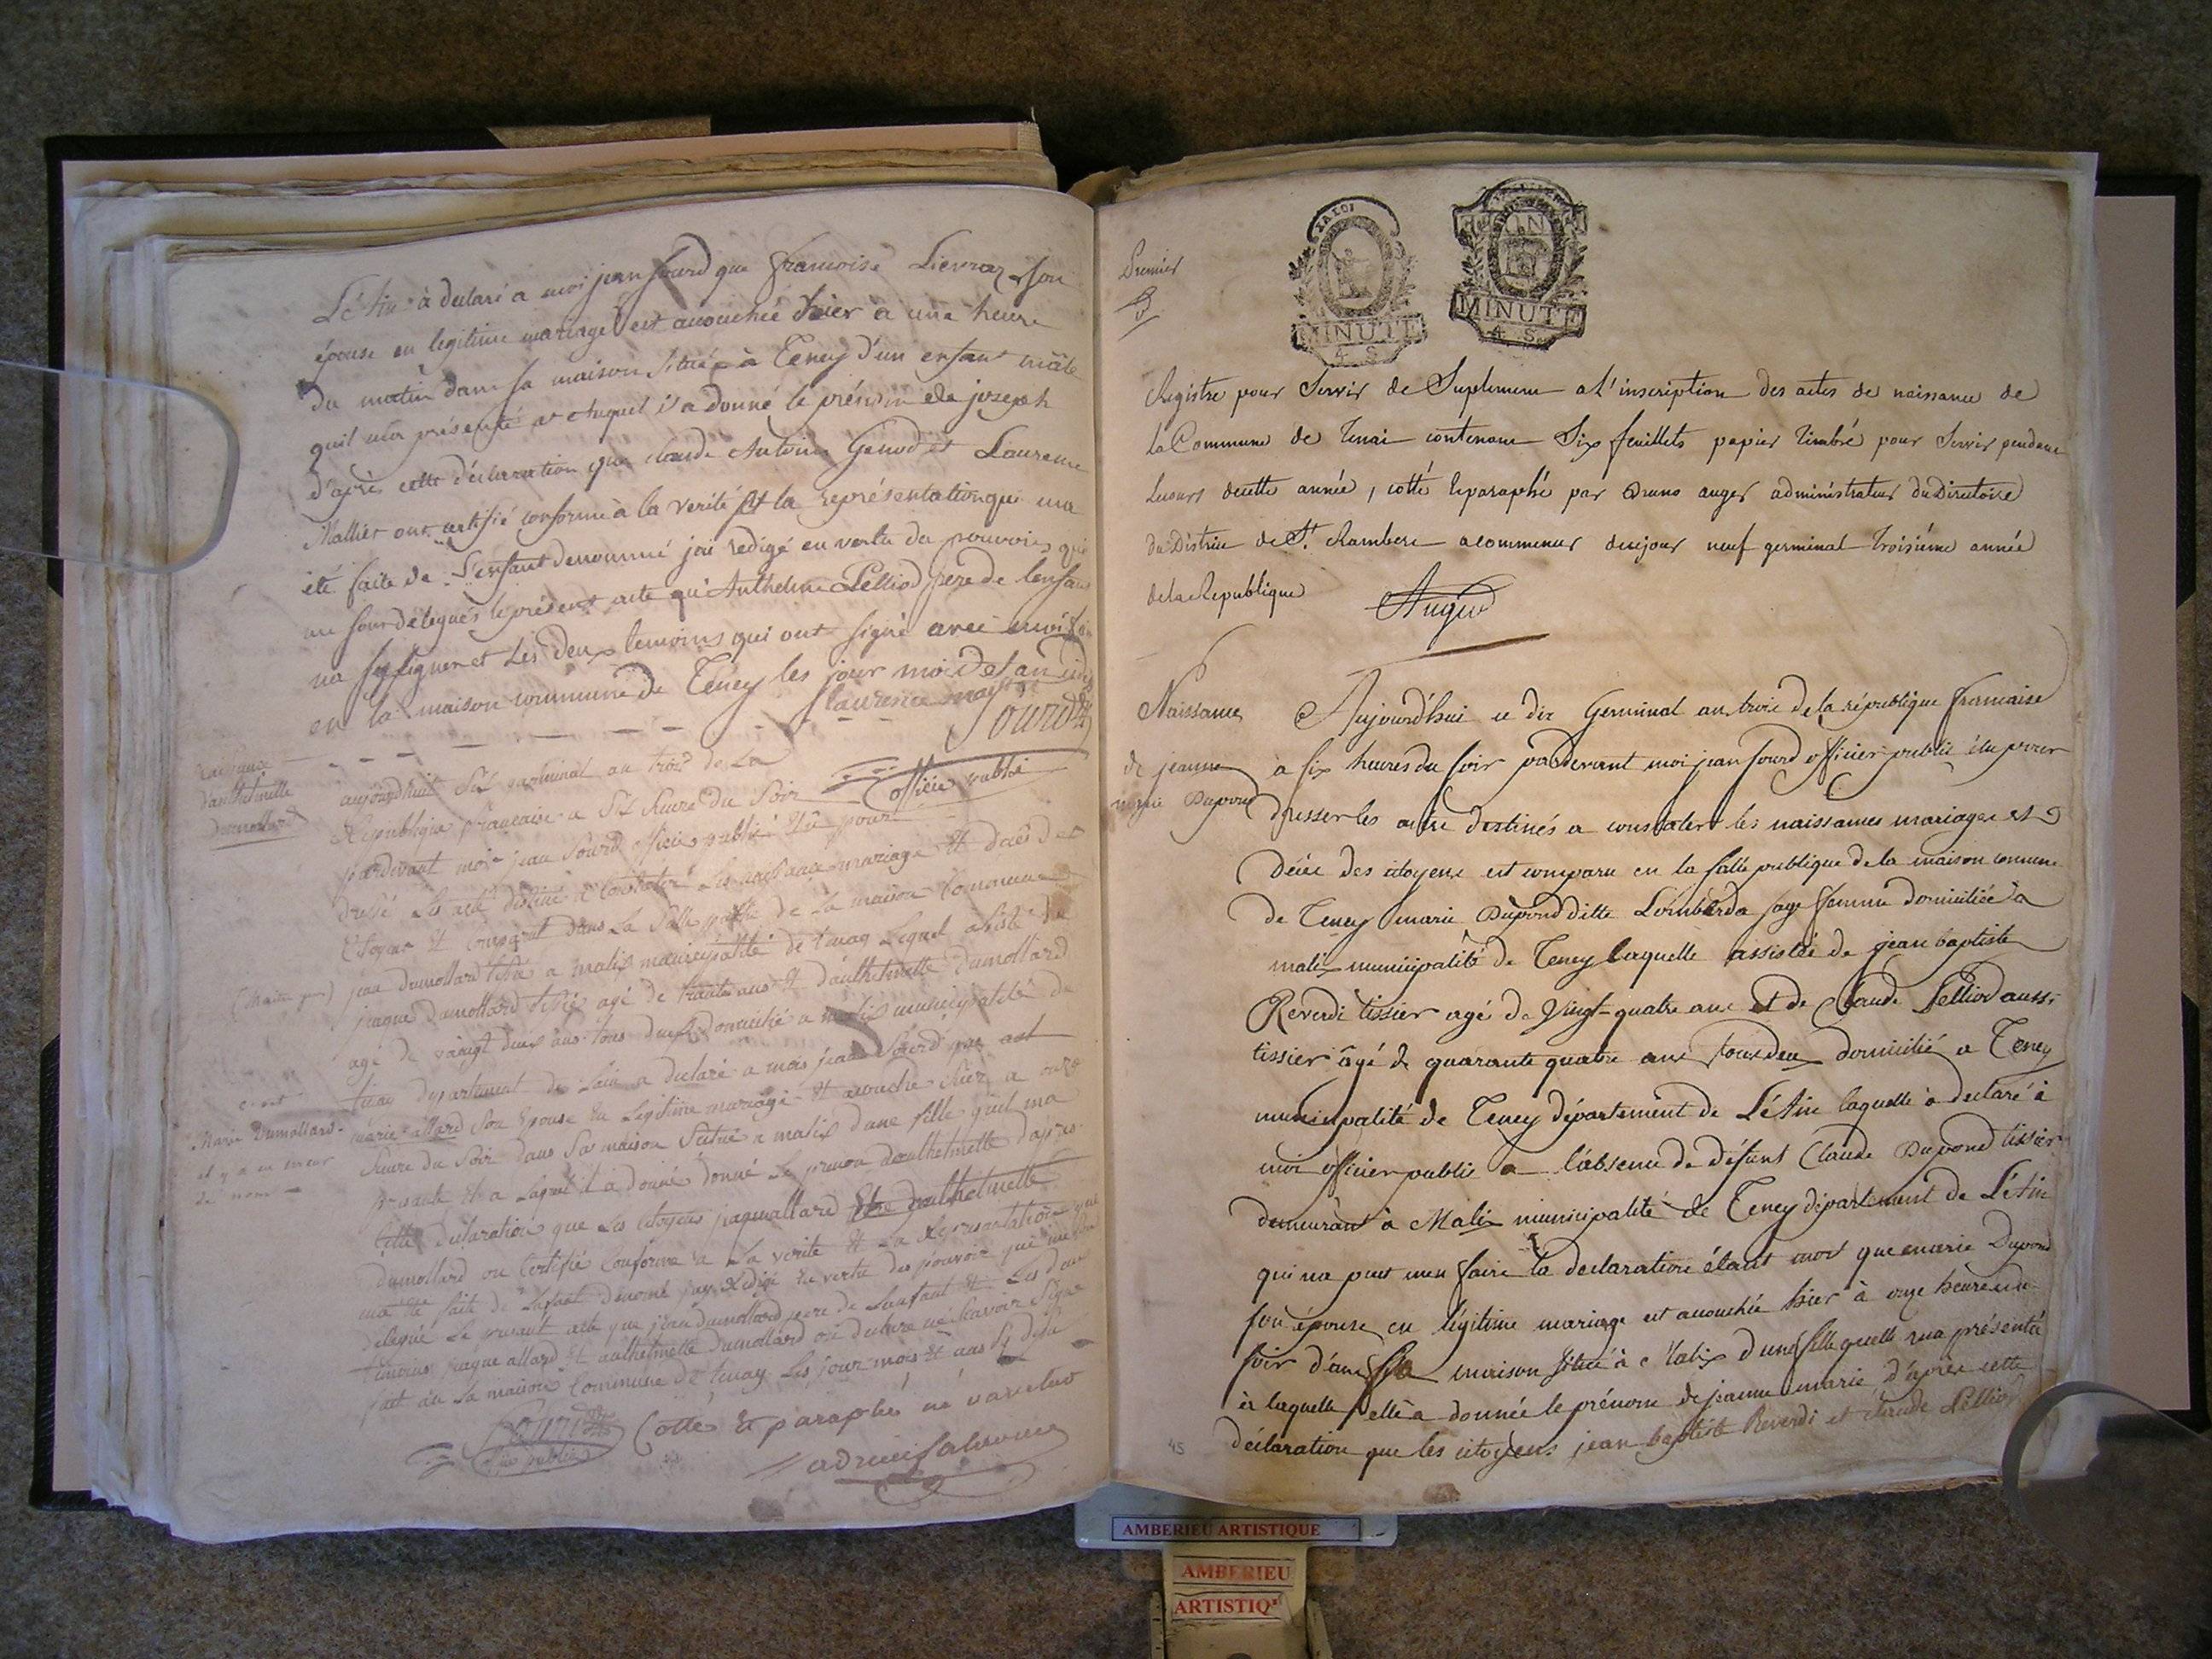 L'Ain à declaré a moi jean sourd que francoise Lievraz son
épouse en legitime mariage est acouchée hier à une heure
du matin dans sa maison située à Teney d'un enfant mâle
quil ma présenté et auquel il a donné le prénom de joseph
d'après cette déclaration que claude Antoine Genod et Laurence
Mathier ont certifié conforme à la verité et la représentation qui ma
été faite de l'enfant denommé jai redigé en vertu des pouvoirs qui
me sont délégués le présent acte qu'Anthelme Pelliod pere de lenfant
na su signer et les deux temoins qui ont signé avec moi
en la maison commune de Teney les jour mois et an
Laurence
Sourd
officié publié
aujourdhuit Six germinal an trois de La
Republique francaise a Six heure du Soir
pardevant moi jean Sourd officié publié élu pour
dressé les acte destiné a Constater Les naissance mariage et decès des
Citoyens et comparut dans La Salle publié de La maison Commune
(Maître jean) jean dumollard tissié a malix municipalité de tenay Lequel asisté de
jaque dumollard tissié agé de trante ans et d'aulthelmette dumollard
agé de vaingt deux ans tous deux domicilié a malix municipalité de
tenay departement de Lain a declaré a mois jean Sourd que
marie allard Son Epouse en Legitime mariage et acouche hier a onze
heure du Soir dans Sa maison Scitué a malix dune fille quil ma
presanté et a Laquel il a donné donné Le prenon daulthelmette dapres
Cette declaration que Les Citoyens jaqu allard et aulthelmette
dumollard on Certifié Conforme a La verité et La Representation que
ma été faite de Lanfant denomé jay Redigé En vertu des pouvoir qui me
delegué Le presant acte que jean dumollard pere de Lanfant et Les deux
temoins jaque allard et aulthelmette dumollard on declare ne Scavoir Signe
fait an La maison Commune de tenay Les jour mois et ans
Sourd
officié publié
Cotté et paraphé ne varietur
d'aulthelmette
dumollard
c'est
Marie Dumollard
il y a eu erreur
de nom
Premier
MINUTE
4 S
MINUTE
4 S
Registre pour Servir de Suplement a l'inscription des actes de naissance de
la Commune de Tenai contenant Six feuillets papier timbré pour Servir pendant
lecours decette année, cotté &paraphé par Bruno auger administrateur duDirectoire
duDistrict de St. Rambert acommencer decejour neuf germinal troisième année
delaRepublique
Auger
Naissance
de jeanne
marie Dupond
Aujourd'hui ce dix Germinal an trois de la république francaise
à six heures du soir par devant moi jean sourd officier publié élu pour
dresser les acte destinés a constater les naissances mariages et
décée des citoyens est comparu en la salle publique de la maison comune
de Teney marie Dupond ditte Lombarda sage femme domiciliée a
malix municipalité de Teney laquelle assistée de jean baptiste
Reverdi tissier agé de vingt-quatre ans et de Claude Pelliod aussi
tissier âgé de quarante quatre ans tous deu domicilié a Teney
municipalité de Teney département de L'Ain laquelle a declaré à
moi officier publié a l'absence de défunt Claude Dupond tissier
demeurant à Malix municipalité de Teney département de L'Ain
qui na put men faire la declaration étant mort que marie Dupond
son épouse en légitime mariage est acouchée hier à onze heure du
soir dans sa maison située à Malix d'une fille quelle ma présenté
et laquelle elle a donnée le prénom de jeanne marie d'après cette
declaration que les citoyens jean baptiste Reverdi et claude Pelliod
45
AMBERIEU ARTISTIQUE
AMBERIEU
ARTISTIQ